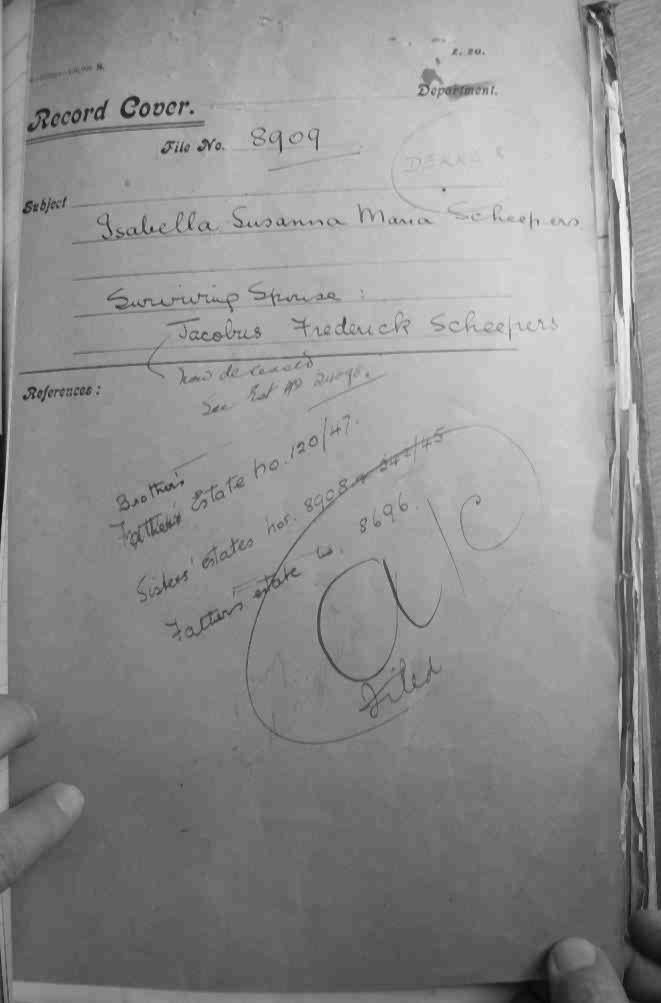 Z. 20.
Department.
Record Cover.
File No. 8909
Subject
Isabella Susanna Maria Scheepers
Surviving Spouse :
Jacobus Frederick Scheepers
now deceased
References :
See Est No
Brother's
Father's Estate no. 120/47.
Sisters' estates nos. 8908 & 342/45
Father's estate No. 8696.
a/c
Filed